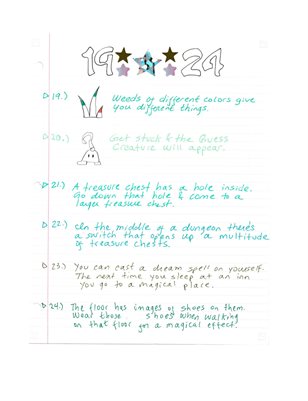 19 24
19.) Weeds of different colors give
you different things.
20.) Get stuck & the Guess
Creature will appear.
21.) A treasure chest has a hole inside.
Go down that hole & come to a
larger treasure chest.
22.) In the middle of a dungeon theres
a switch that opens up a multitude
of treasure chests.
23.) You can cast a dream spell on yourself.
The next time you sleep at an inn
you go to a magical place.
24.) The floor has images of shoes on them.
Wear those shoes when walking
on that floor for a magical effect.